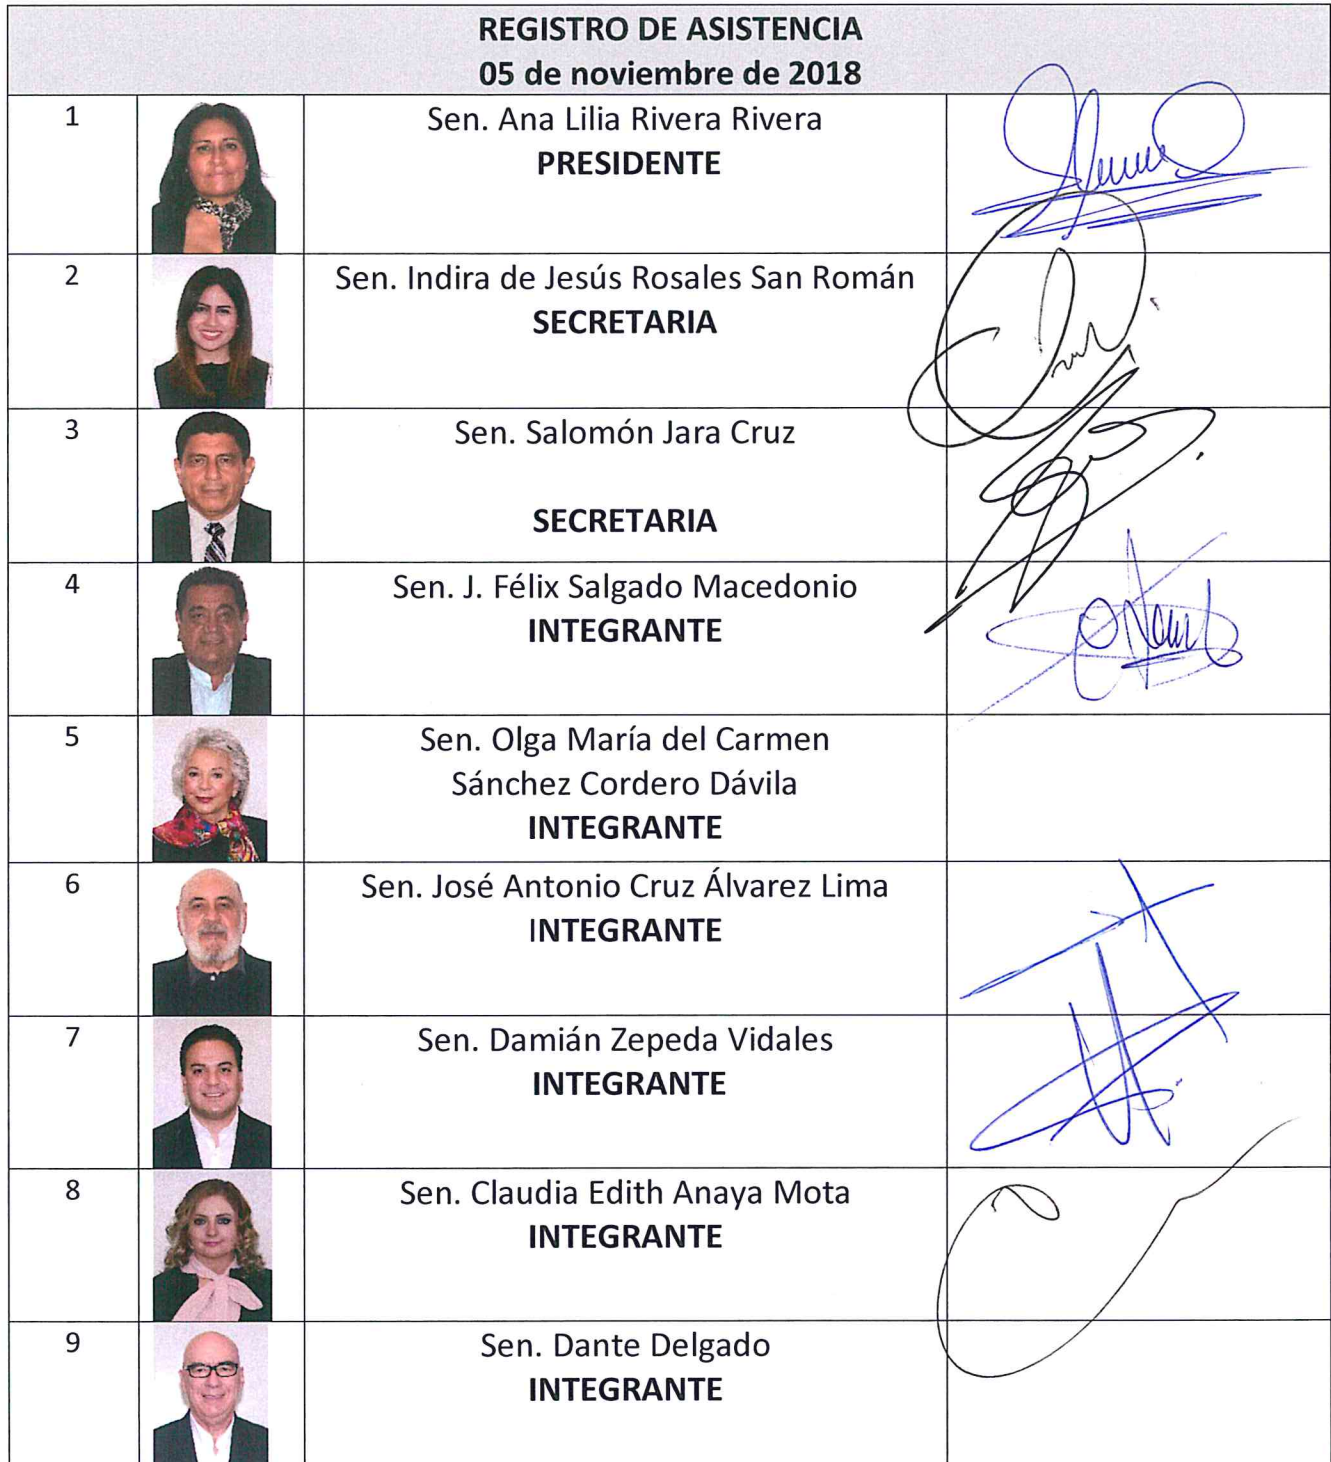 REGISTRO DE ASISTENCIA
05 de noviembre de 2018
1
Sen. Ana Lilia Rivera Rivera
PRESIDENTE
2
Sen. Indira de Jesús Rosales San Román
SECRETARIA
3
Sen. Salomón Jara Cruz
SECRETARIA
4
Sen. J. Félix Salgado Macedonio
INTEGRANTE
5
Sen. Olga María del Carmen
Sánchez Cordero Dávila
INTEGRANTE
6
Sen. José Antonio Cruz Álvarez Lima
INTEGRANTE
7
Sen. Damián Zepeda Vidales
INTEGRANTE
8
Sen. Claudia Edith Anaya Mota
INTEGRANTE
9
Sen. Dante Delgado
INTEGRANTE